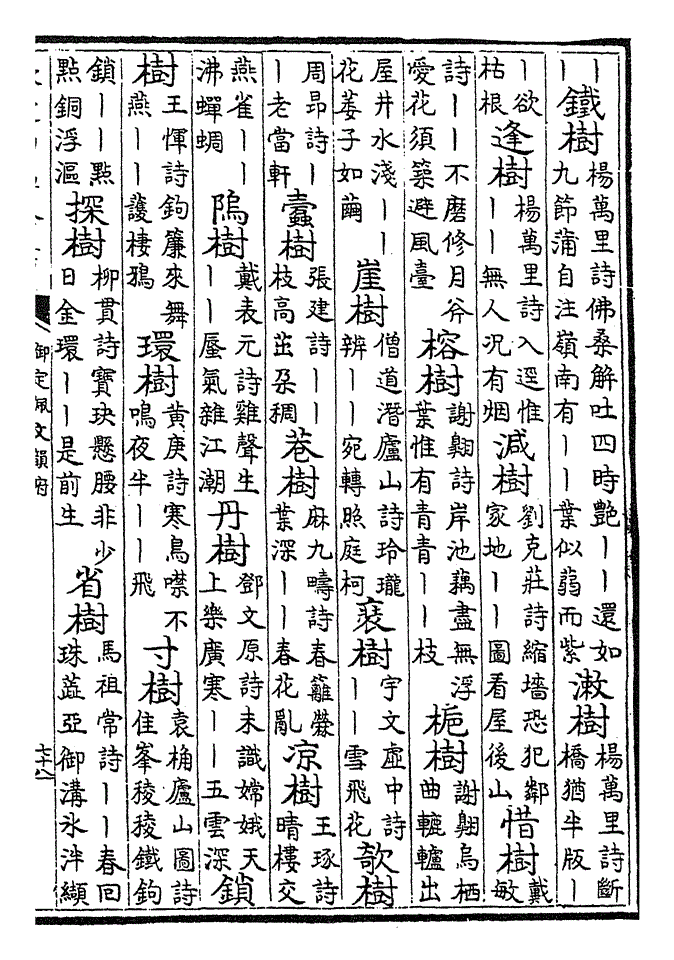 丨鐵樹楊萬里詩佛桑解吐四時艷丨丨還如九節蒲自注嶺南有丨丨葉似蒻而紫漱樹楊萬里詩斷橋猶半版丨
丨欲枯根逢樹楊萬里詩入逕惟丨丨無人況有烟減樹劉克莊詩縮墻恐犯鄰家地丨丨圖看屋後山惜樹戴敏
詩丨丨不磨修月斧愛花須築避風臺榕樹謝翱詩岸池藕盡無浮葉惟有青青丨丨枝梔樹謝翱烏栖曲轆轤出
屋井水淺丨丨花萎子如繭崖樹僧道潛廬山詩玲瓏辨丨丨宛轉照庭柯裛樹宇文虛中詩丨丨雪飛花欹樹
周昂詩丨丨老當軒蠹樹張建詩丨丨枝高茁朶稠巷樹麻九疇詩春籬縈葉深丨丨春花亂涼樹王琢詩晴樓交
燕雀丨丨沸蟬蜩隖樹戴表元詩雞聲生丨丨蜃氣雜江潮丹樹鄧文原詩未識嫦娥天上樂廣寒丨丨五雲深鎖
樹王惲詩鉤簾來舞燕丨丨護棲鴉環樹黄庚詩寒鳥噤不鳴夜半丨丨飛寸樹袁桷廬山圖詩佳峯稜稜鐵鉤
鎖丨丨點點銅浮漚探樹柳貫詩寶玦懸腰非少日金環丨丨是前生省樹馬祖常詩丨丨春回珠蕋亞御溝氷泮纈
御定佩文韻府
七十八